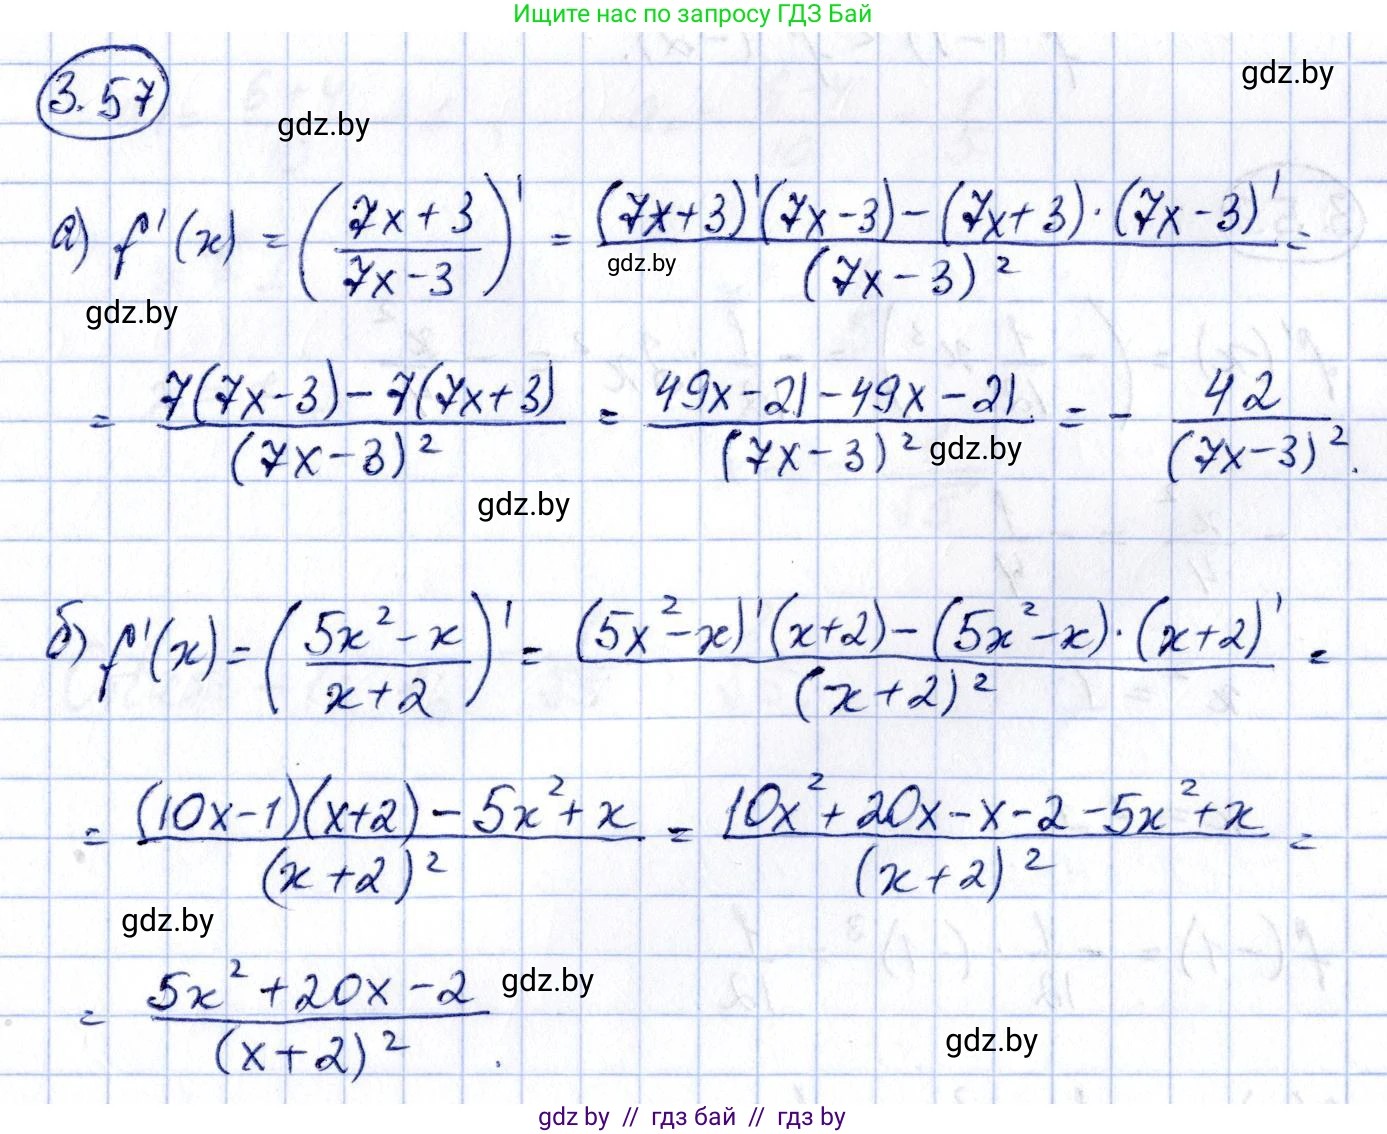 Ищите нас по запросу ГДЗ Бай
3.57
gdz.by
gdz.by
а) f'(x) = ((7x+3)/(7x-3))' = ((7x+3)'(7x-3)-(7x+3)·(7x-3)')/(7x-3)² =
gdz.by
gdz.by
= (7(7x-3)-7(7x+3))/(7x-3)² = (49x-21-49x-21)/(7x-3)² = - 42/(7x-3)².
gdz.by
gdz.by
б) f'(x) = ((5x²-x)/(x+2))' = ((5x²-x)'(x+2)-(5x²-x)·(x+2)')/(x+2)² =
= ((10x-1)(x+2)-5x²+x)/(x+2)² = (10x²+20x-x-2-5x²+x)/(x+2)² =
gdz.by
= (5x²+20x-2)/(x+2)².
gdz.by
gdz.by
gdz by // гдз бай // гдз by